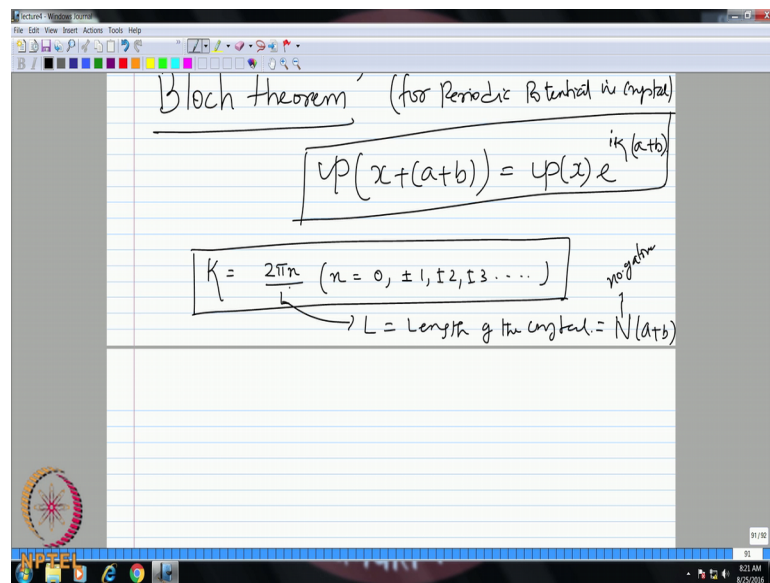 lecture4 - Windows Journal
File Edit View Insert Actions Tools Help
Bloch theorem (for Periodic Potential in crystal)
ψ(x+(a+b)) = ψ(x) e^{ik(a+b)}
K = 2πn/L (n = 0, ±1, ±2, ±3 ....)
L = Length of the crystal. = N(a+b)
91/92
91
NPTEL
8:21 AM
8/25/2016